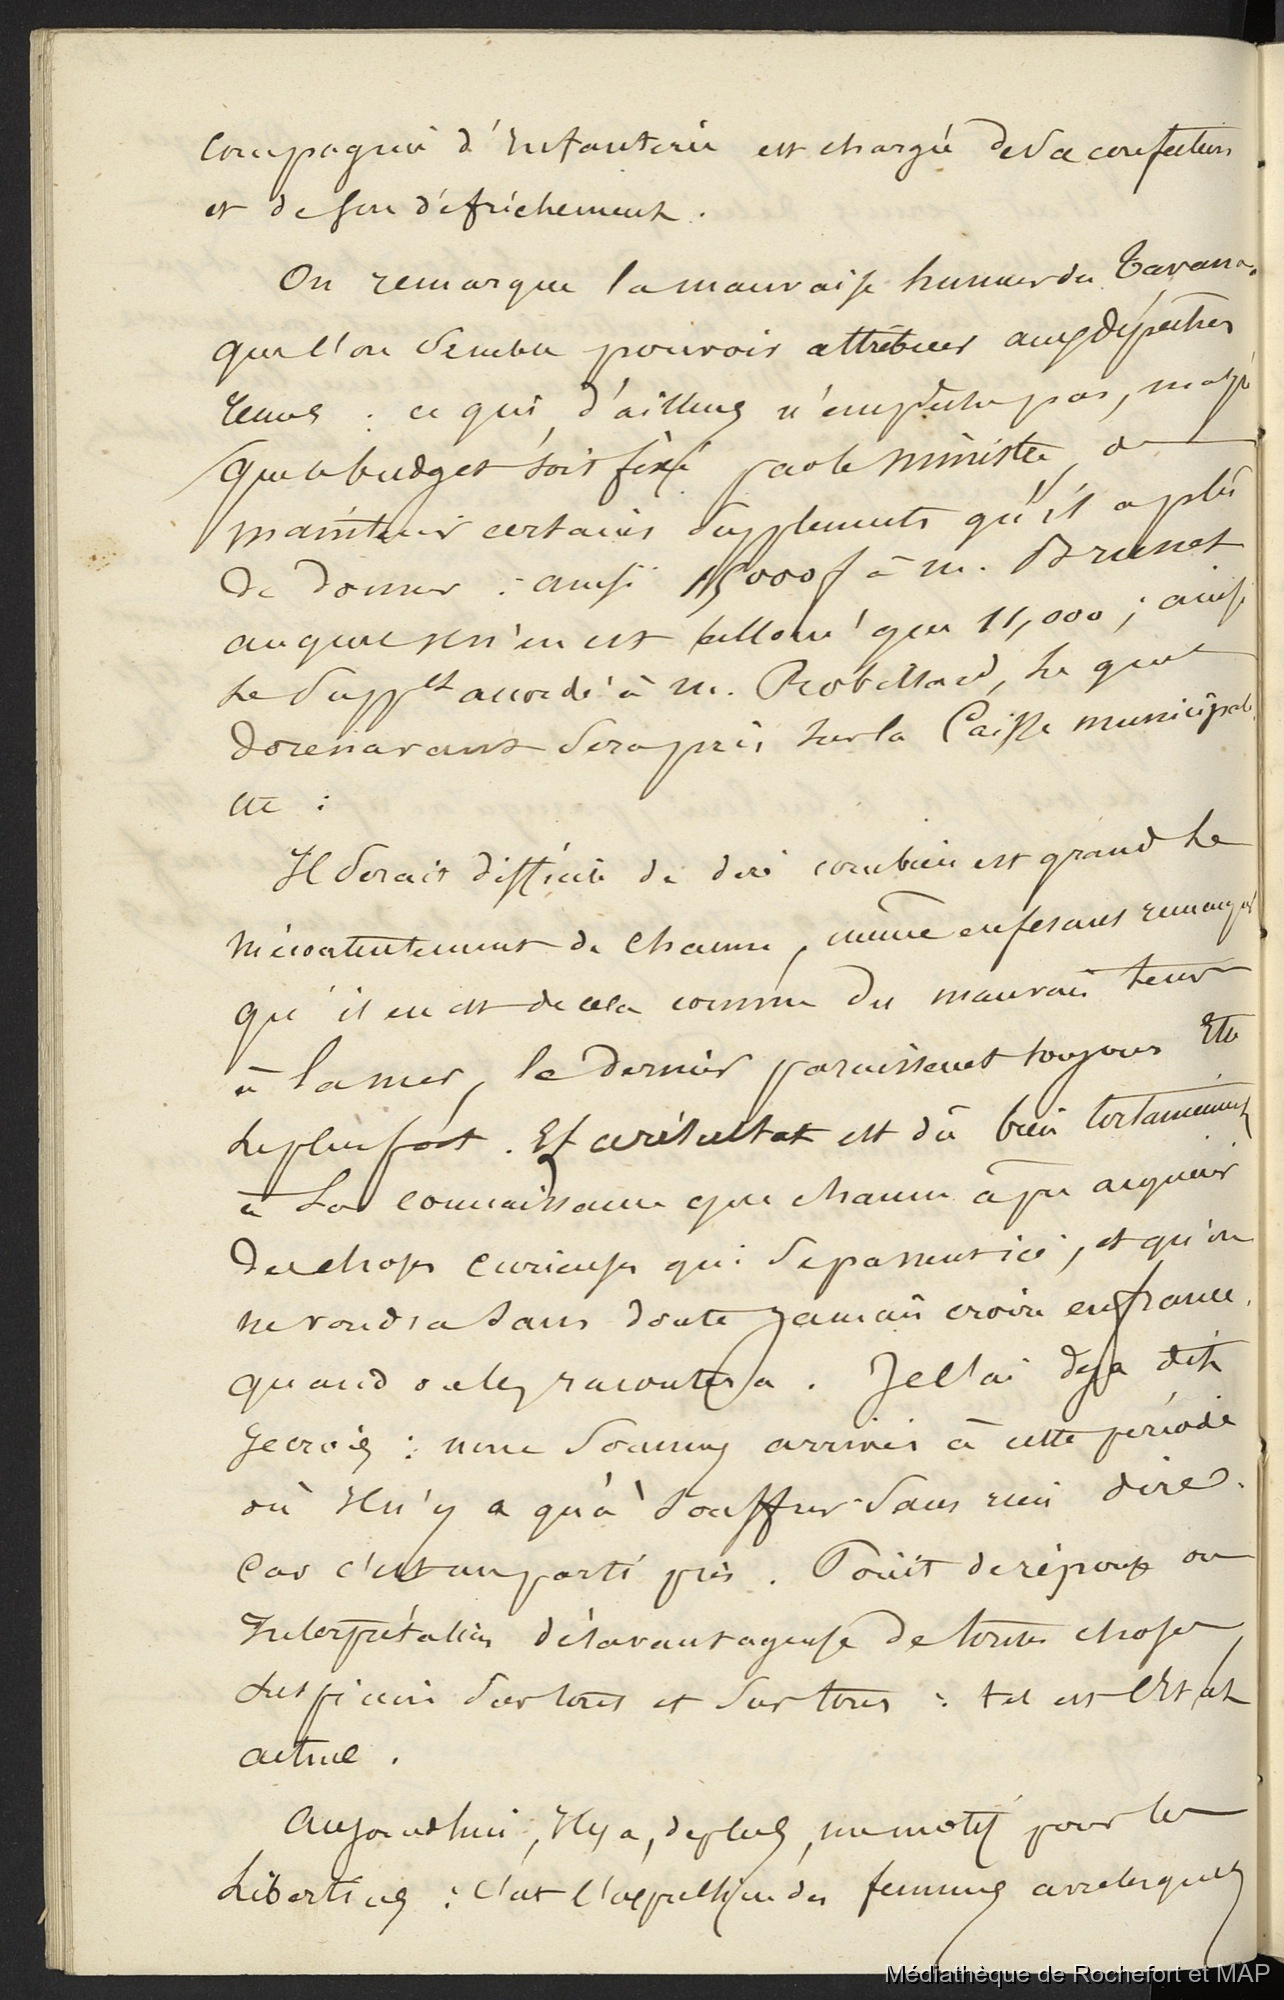 Compagnie d'Infanterie est chargée de sa confection
et de son défrichement.
On remarque la mauvaise humeur du Tavana.
que l'on semble pouvoir attribuer aux dépêches
reçues : ce qui, d'ailleurs n'empêche pas, malgré
que le budget soit fixé par le ministre, de
maintenir certains suppléments qu'il a plû
de donner : ainsi 15000f à m. Brunet
auquel il n'en est alloué que 11,000 ; ainsi
le Supplt accordé à m. Robillard, le quel
dorenavant sera pris sur la Caisse municipale
etc :
Il serait difficile de dire combien est grand le
mécontentement de chacun, même en fesant remarquer
qu'il en est de cela comme du mauvais tems
à la mer, le dernier paraissant toujours être
le plus fort. Et ce résultat est dû bien certainement
à la connaissance que chacun a pu acquérir
des choses curieuses qui se passent ici, et qu'on
ne voudra sans doute jamais croire en france,
quand on les racontera. Je l'ai déja dit
je crois : nous sommes arrivés à cette période
où il n'y a qu'à souffrir sans rien dire.
Car c'est un parti pris. Point de réponse ou
Interprétation désavantageuse de toutes choses,
suspicion sur tout et sur tous : tel est l'Etat
actuel.
Aujourdhui, Il y a, de plus, un motif pour les
Libertins : c'est l'expulsion des femmes